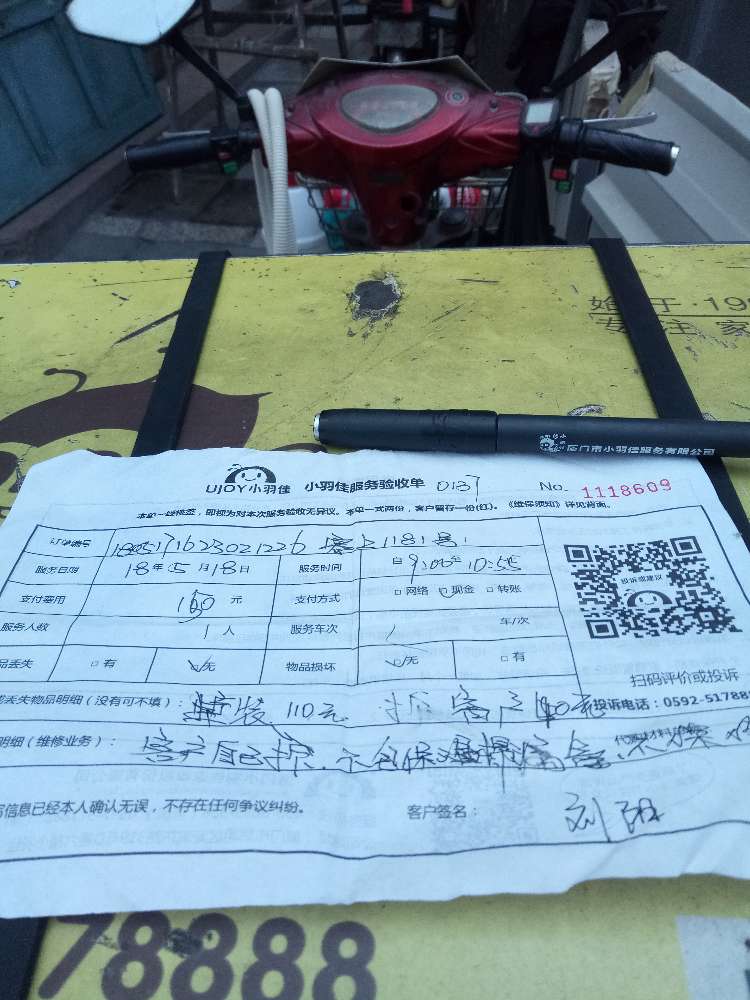 始于·199
专注 家
厦门市小羽佳服务有限公司
UJOY小羽佳 小羽佳服务验收单 0137 No. 1118609
本单一经检签,即视为对本次服务验收无异议。本单一式两份,客户留存一份(红)。《维保须知》详见背面。
订单编号 1181号
服务日期 18年5月18日 服务时间 自9:00至10:55
支付费用 150元 支付方式 □网络 □现金 □转账
服务人数 1人 服务车次 1 车/次
品丢失 □有 □无 物品损坏 □无 □有
投诉或建议
扫码评价或投诉
投诉电话:0592-51788
或丢失物品明细(没有可不填): 装 110元 客户
明细(维修业务): 客户自己 不包保
写信息已经本人确认无误,不存在任何争议纠纷。 客户签名: 刘
78888